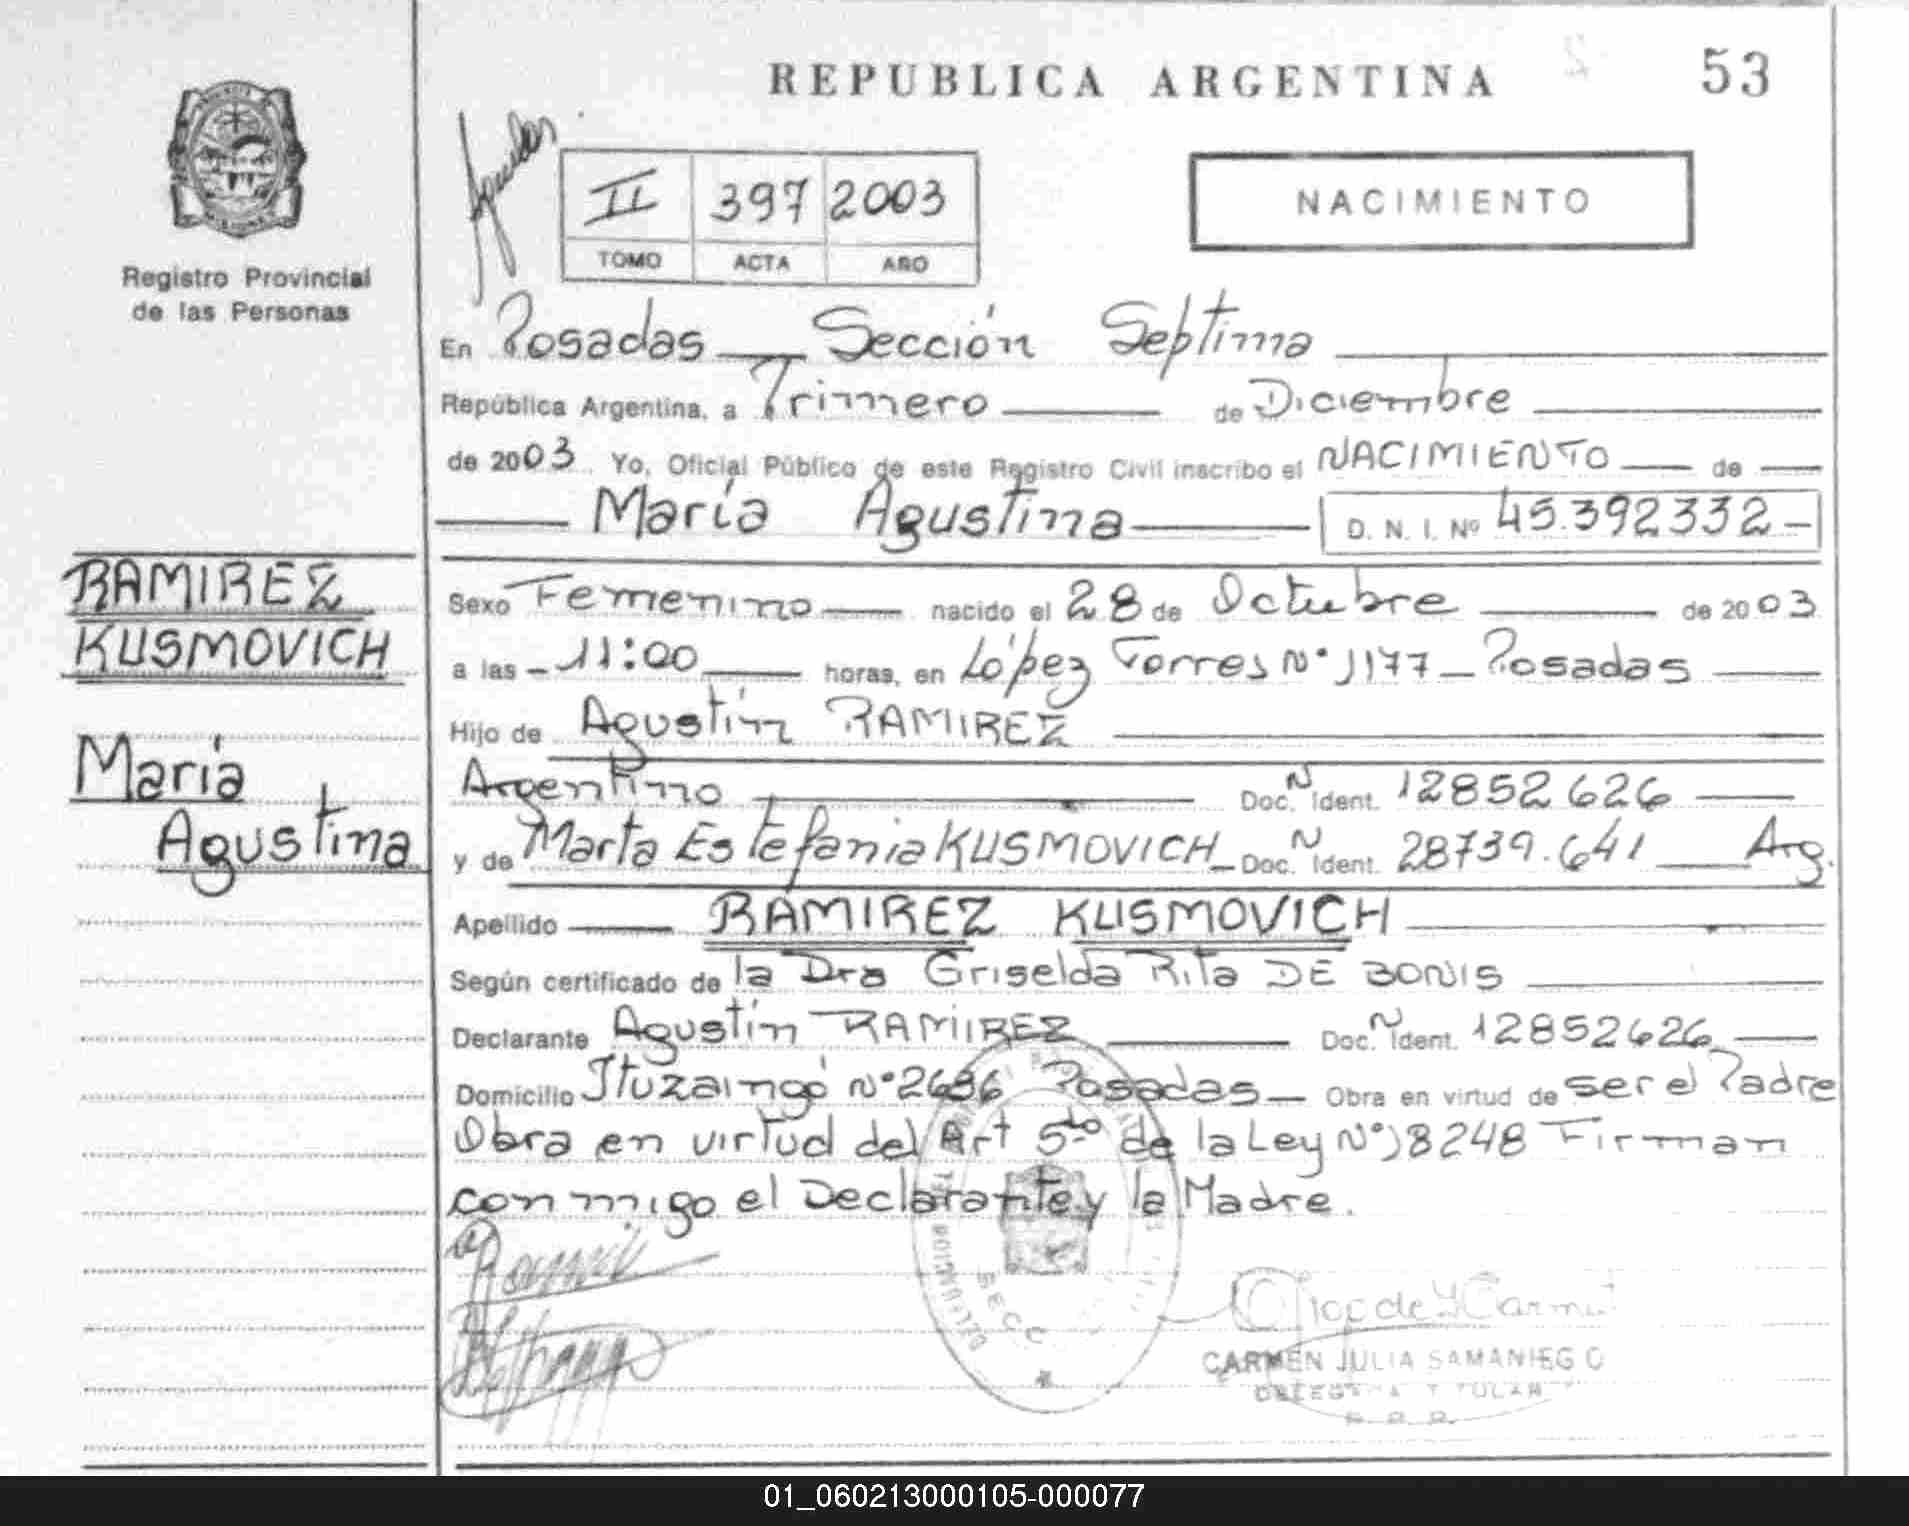 REPUBLICA ARGENTINA
53
II 397 2003
TOMO ACTA AÑO
NACIMIENTO
Registro Provincial
de las Personas
En Posadas Sección Septima
República Argentina, a Primero de Diciembre
de 2003 Yo, Oficial Público de este Registro Civil inscribo el NACIMIENTO de
María Agustina D. N. I. Nº 45.392332-
RAMIREZ
KUSMOVICH
María
Agustina
Sexo Femenino nacido el 28 de Octubre de 2003
a las 11:00 horas, en López Torres N° 1177 Posadas
Hijo de Agustín RAMIREZ
Argentino Doc. N Ident. 12852626
y de Marta Estefania KUSMOVICH Doc. N Ident. 28739.641 Arg.
Apellido RAMIREZ KUSMOVICH
Según certificado de la Dra Griselda Rita DE BONIS
Declarante Agustín RAMIREZ Doc. N Ident. 12852626
Domicilio Ituzaingó N° 2686 Posadas Obra en virtud de ser el Padre
Obra en virtud del Art 5to de la Ley N° 18248 Firman
conmigo el Declarante y la Madre.
SECC
CARMEN JULIA SAMANIEGO
DELEGADA TITULAR
01_060213000105-000077